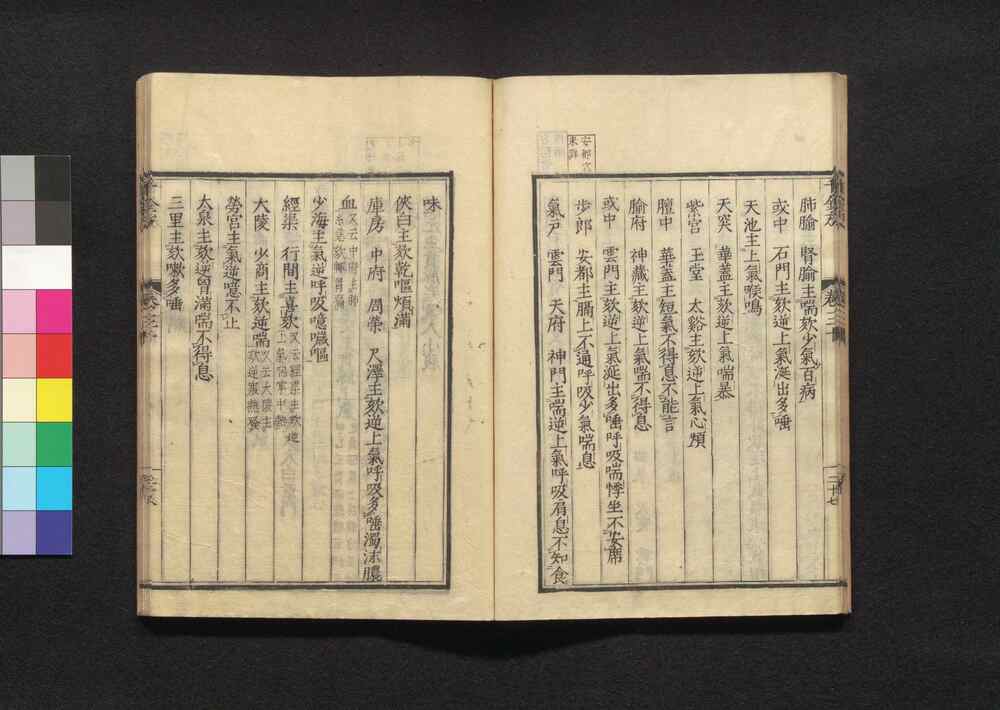 肺腧　腎腧主喘欬少氣百病
或中　石門主欬逆上氣涎出多唾
天池主上氣喉鳴
天突　華蓋主欬逆上氣喘暴
紫宮　玉堂　太谿主欬逆上氣心煩
膻中　華蓋主短氣不得息不能言
腧府　神藏主欬逆上氣喘不得息
或中　雲門主欬逆上氣涎出多唾呼吸喘悸坐不安席
步郎　安都主膈上不通呼吸少氣喘息
氣戶　雲門　天府　神門主喘逆上氣呼吸肩息不知食
味
俠白主欬乾嘔煩滿
庫房　中府　周榮　尺澤主欬逆上氣呼吸多唾濁沫膿
血
少海主氣逆呼吸噫噦嘔
經渠　行間主喜欬
大陵　少商主欬逆喘
勞宮主氣逆噫不止
太泉主欬逆胷滿喘不得息
三里主欬嗽多唾